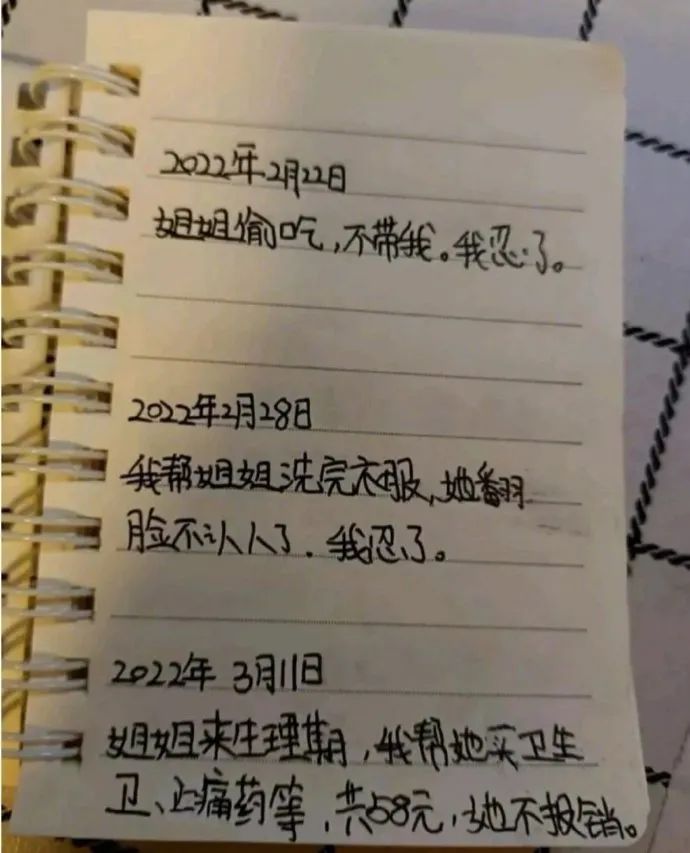 2022年2月22日
姐姐偷吃,不带我。我忍了。
2022年2月28日
我帮姐姐洗完衣服,她翻
脸不认人了.我忍了。
2022年 3月11日
姐姐来生理期,我帮她买卫生
卫、止痛药等,共58元,她不报销。